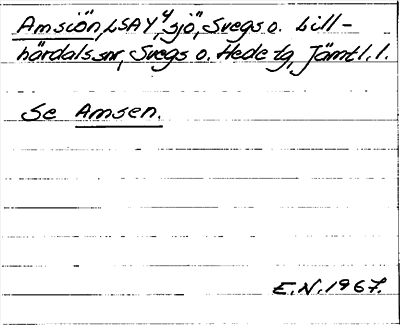 Amsiön, LSAY, "sjö", Svegs o. Lill-
härdals snr, Svegs o. Hede tg, Jämtl. l.
Se Amsen.
E.N. 1967.